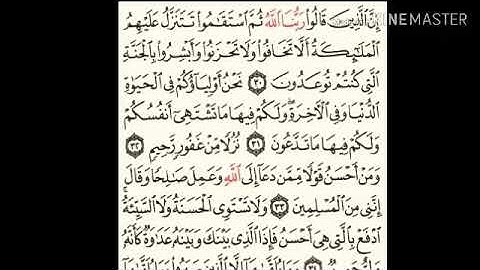 KINEMASTER
إِنَّ ٱلَّذِينَ قَالُوا۟ رَبُّنَا ٱللَّهُ ثُمَّ ٱسْتَقَـٰمُوا۟ تَتَنَزَّلُ عَلَيْهِمُ
ٱلْمَلَـٰٓئِكَةُ أَلَّا تَخَافُوا۟ وَلَا تَحْزَنُوا۟ وَأَبْشِرُوا۟ بِٱلْجَنَّةِ
ٱلَّتِى كُنتُمْ تُوعَدُونَ ٣٠ نَحْنُ أَوْلِيَآؤُكُمْ فِى ٱلْحَيَوٰةِ
ٱلدُّنْيَا وَفِى ٱلْـَٔاخِرَةِ ۖ وَلَكُمْ فِيهَا مَا تَشْتَهِىٓ أَنفُسُكُمْ
وَلَكُمْ فِيهَا مَا تَدَّعُونَ ٣١ نُزُلًا مِّنْ غَفُورٍ رَّحِيمٍ ٣٢
وَمَنْ أَحْسَنُ قَوْلًا مِّمَّن دَعَآ إِلَى ٱللَّهِ وَعَمِلَ صَـٰلِحًا وَقَالَ
إِنَّنِى مِنَ ٱلْمُسْلِمِينَ ٣٣ وَلَا تَسْتَوِى ٱلْحَسَنَةُ وَلَا ٱلسَّيِّئَةُ ۚ
ٱدْفَعْ بِٱلَّتِى هِىَ أَحْسَنُ فَإِذَا ٱلَّذِى بَيْنَكَ وَبَيْنَهُۥ عَدَٰوَةٌ كَأَنَّهُۥ